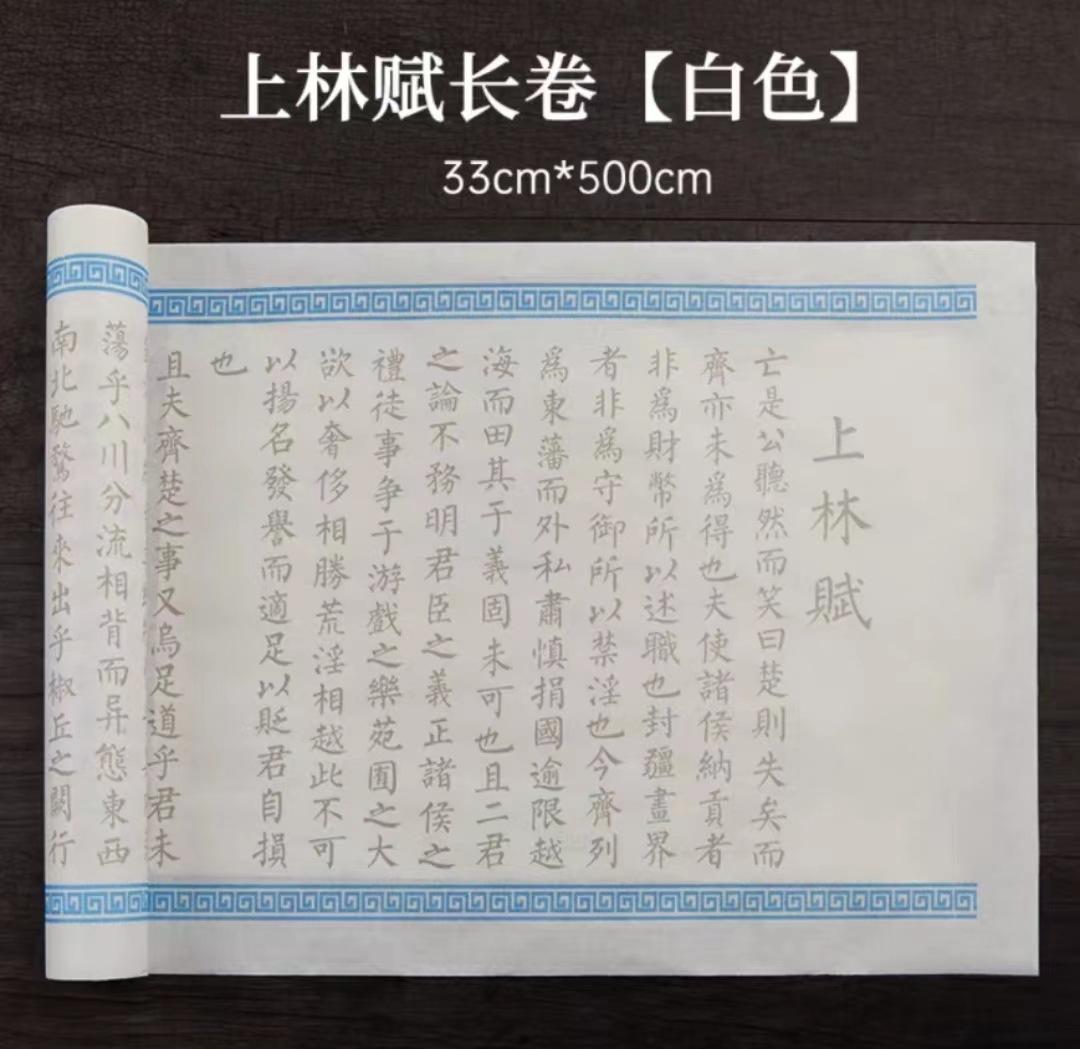 上林赋长卷【白色】
33cm*500cm
上林賦
亡是公聽然而笑曰楚則失矣而
齊亦未為得也夫使諸侯納貢者
非為財幣所以述職也封疆畫界
者非為守御所以禁淫也今齊列
為東藩而外私肅慎捐國逾限越
海而田其于義固未可也且二君
之論不務明君臣之義正諸侯之
禮徒事争于游戲之樂苑囿之大
欲以奢侈相勝荒淫相越此不可
以揚名發譽而適足以貶君自損
也
且夫齊楚之事又烏足道乎君未
蕩乎八川分流相背而异態東西
南北馳騖往來出乎椒丘之闕行